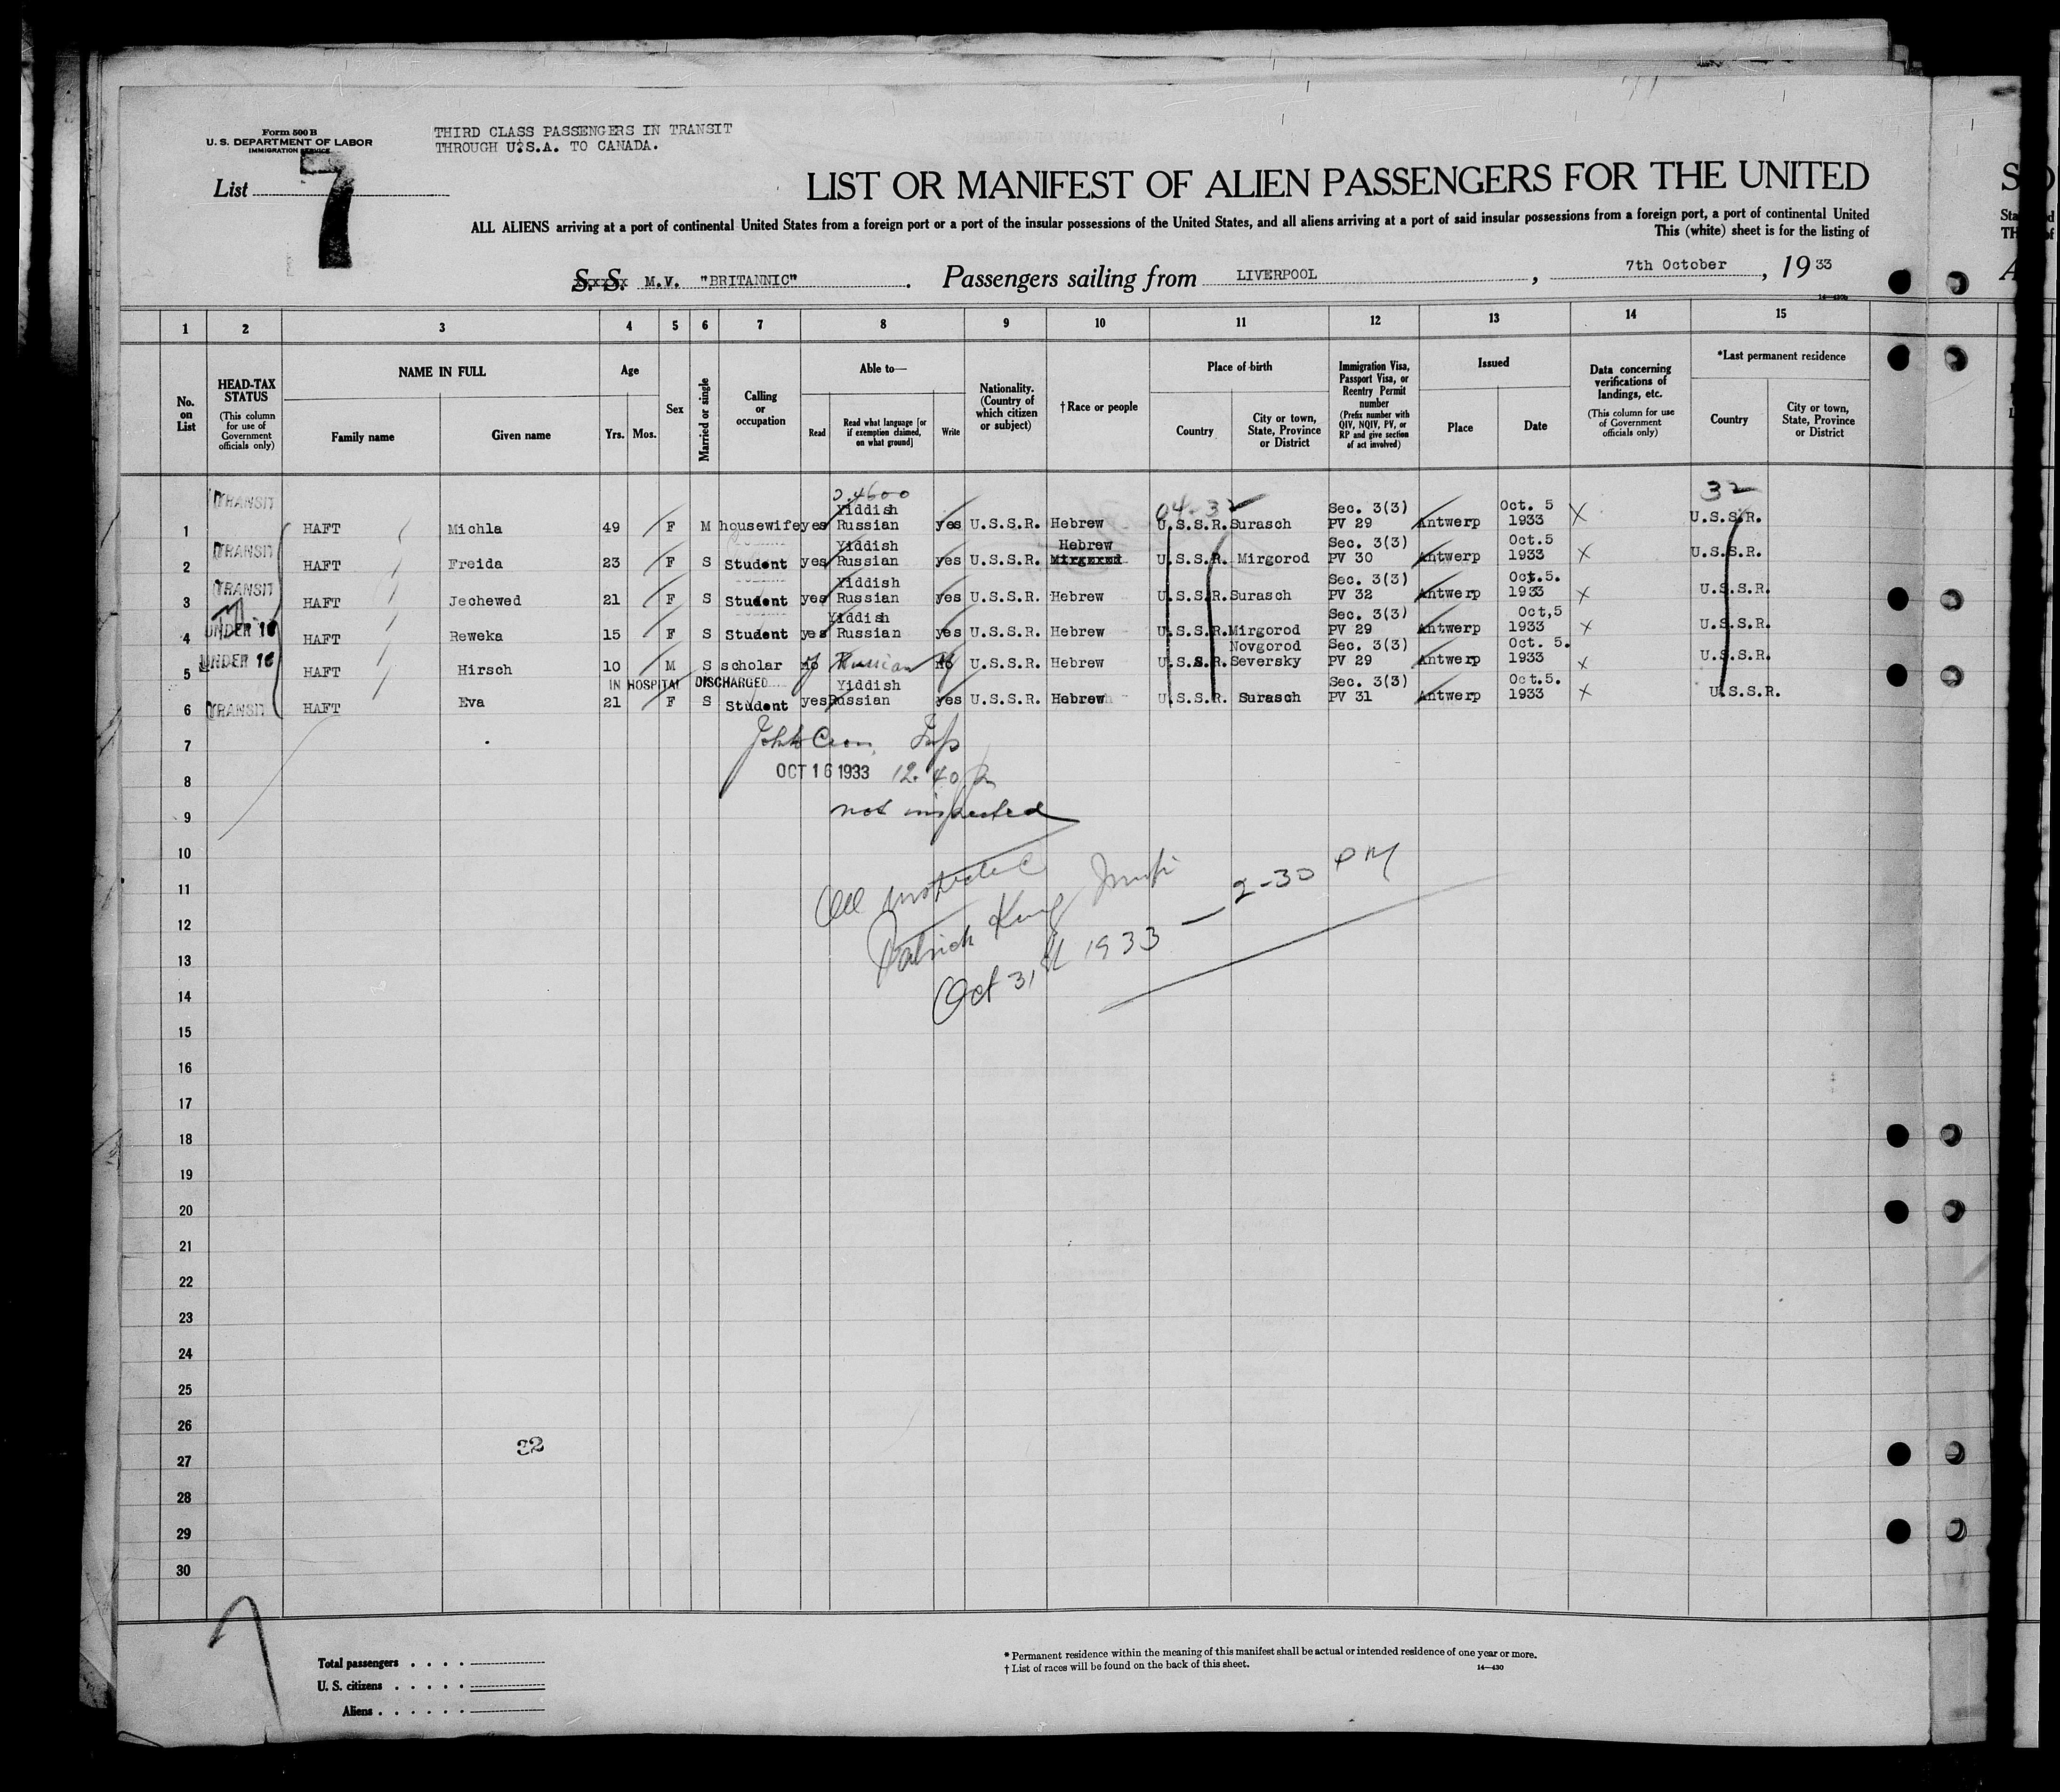 Form 500 B
U. S. DEPARTMENT OF LABOR
IMMIGRATION SERVICE
THIRD CLASS PASSENGERS IN TRANSIT
THROUGH U.S.A. TO CANADA.
List 7
LIST OR MANIFEST OF ALIEN PASSENGERS FOR THE UNITED
ALL ALIENS arriving at a port of continental United States from a foreign port or a port of the insular possessions of the United States, and all aliens arriving at a port of said insular possessions from a foreign port, a port of continental United
This (white) sheet is for the listing of
S. S. M.V. "BRITANNIC". Passengers sailing from LIVERPOOL, 7th October, 19 33
1 2 3 4 5 6 7 8 9 10 11 12 13 14 15
No. on List
HEAD-TAX STATUS
(This column for use of Government officials only)
NAME IN FULL
Family name
Given name
Age
Yrs. Mos.
Sex
Married or single
Calling or occupation
Able to—
Read
Read what language [or if exemption claimed, on what ground]
Write
Nationality. (Country of which citizen or subject)
†Race or people
Place of birth
Country
City or town, State, Province or District
Immigration Visa, Passport Visa, or Reentry Permit number
(Prefix number with QIV, NQIV, PV, or RP and give section of act involved)
Issued
Place
Date
Data concerning verifications of landings, etc.
(This column for use of Government officials only)
*Last permanent residence
Country
City or town, State, Province or District
04-32
32
TRANSIT Yiddish Sec. 3(3) Oct. 5
1 HAFT Michla 49 F M housewife yes Russian yes U.S.S.R. Hebrew U.S.S.R. Surasch PV 29 Antwerp 1933 X U.S.S.R.
TRANSIT Yiddish Hebrew Sec. 3(3) Oct.5
2 HAFT Freida 23 F S Student yes Russian yes U.S.S.R. U.S.S.R. Mirgorod PV 30 Antwerp 1933 X U.S.S.R.
TRANSIT Yiddish Sec. 3(3) Oct.5.
3 HAFT Jechewed 21 F S Student yes Russian yes U.S.S.R. Hebrew U.S.S.R. Surasch PV 32 Antwerp 1933 X U.S.S.R.
UNDER 16 Yiddish Sec. 3(3) Oct,5
4 HAFT Reweka 15 F S Student yes Russian yes U.S.S.R. Hebrew U.S.S.R. Mirgorod PV 29 Antwerp 1933 X U.S.S.R.
UNDER 16 Novgorod Sec. 3(3) Oct. 5.
5 HAFT Hirsch 10 M S scholar no Russian no U.S.S.R. Hebrew U.S.S.R. Seversky PV 29 Antwerp 1933 X U.S.S.R.
IN HOSPITAL DISCHARGED Yiddish Sec. 3(3) Oct.5.
6 TRANSIT HAFT Eva 21 F S Student yes Russian yes U.S.S.R. Hebrew U.S.S.R. Surasch PV 31 Antwerp 1933 X U.S.S.R.
7
OCT 16 1933 12.40 p
8
not inspected
9
10
All inspected
11
Patrick King 2-30 PM
12
13
Oct 31st 1933
14
15
16
17
18
19
20
21
22
23
24
25
26
32
27
28
29
30
7
Total passengers
U. S. citizens
Aliens
* Permanent residence within the meaning of this manifest shall be actual or intended residence of one year or more.
† List of races will be found on the back of this sheet.
14—430